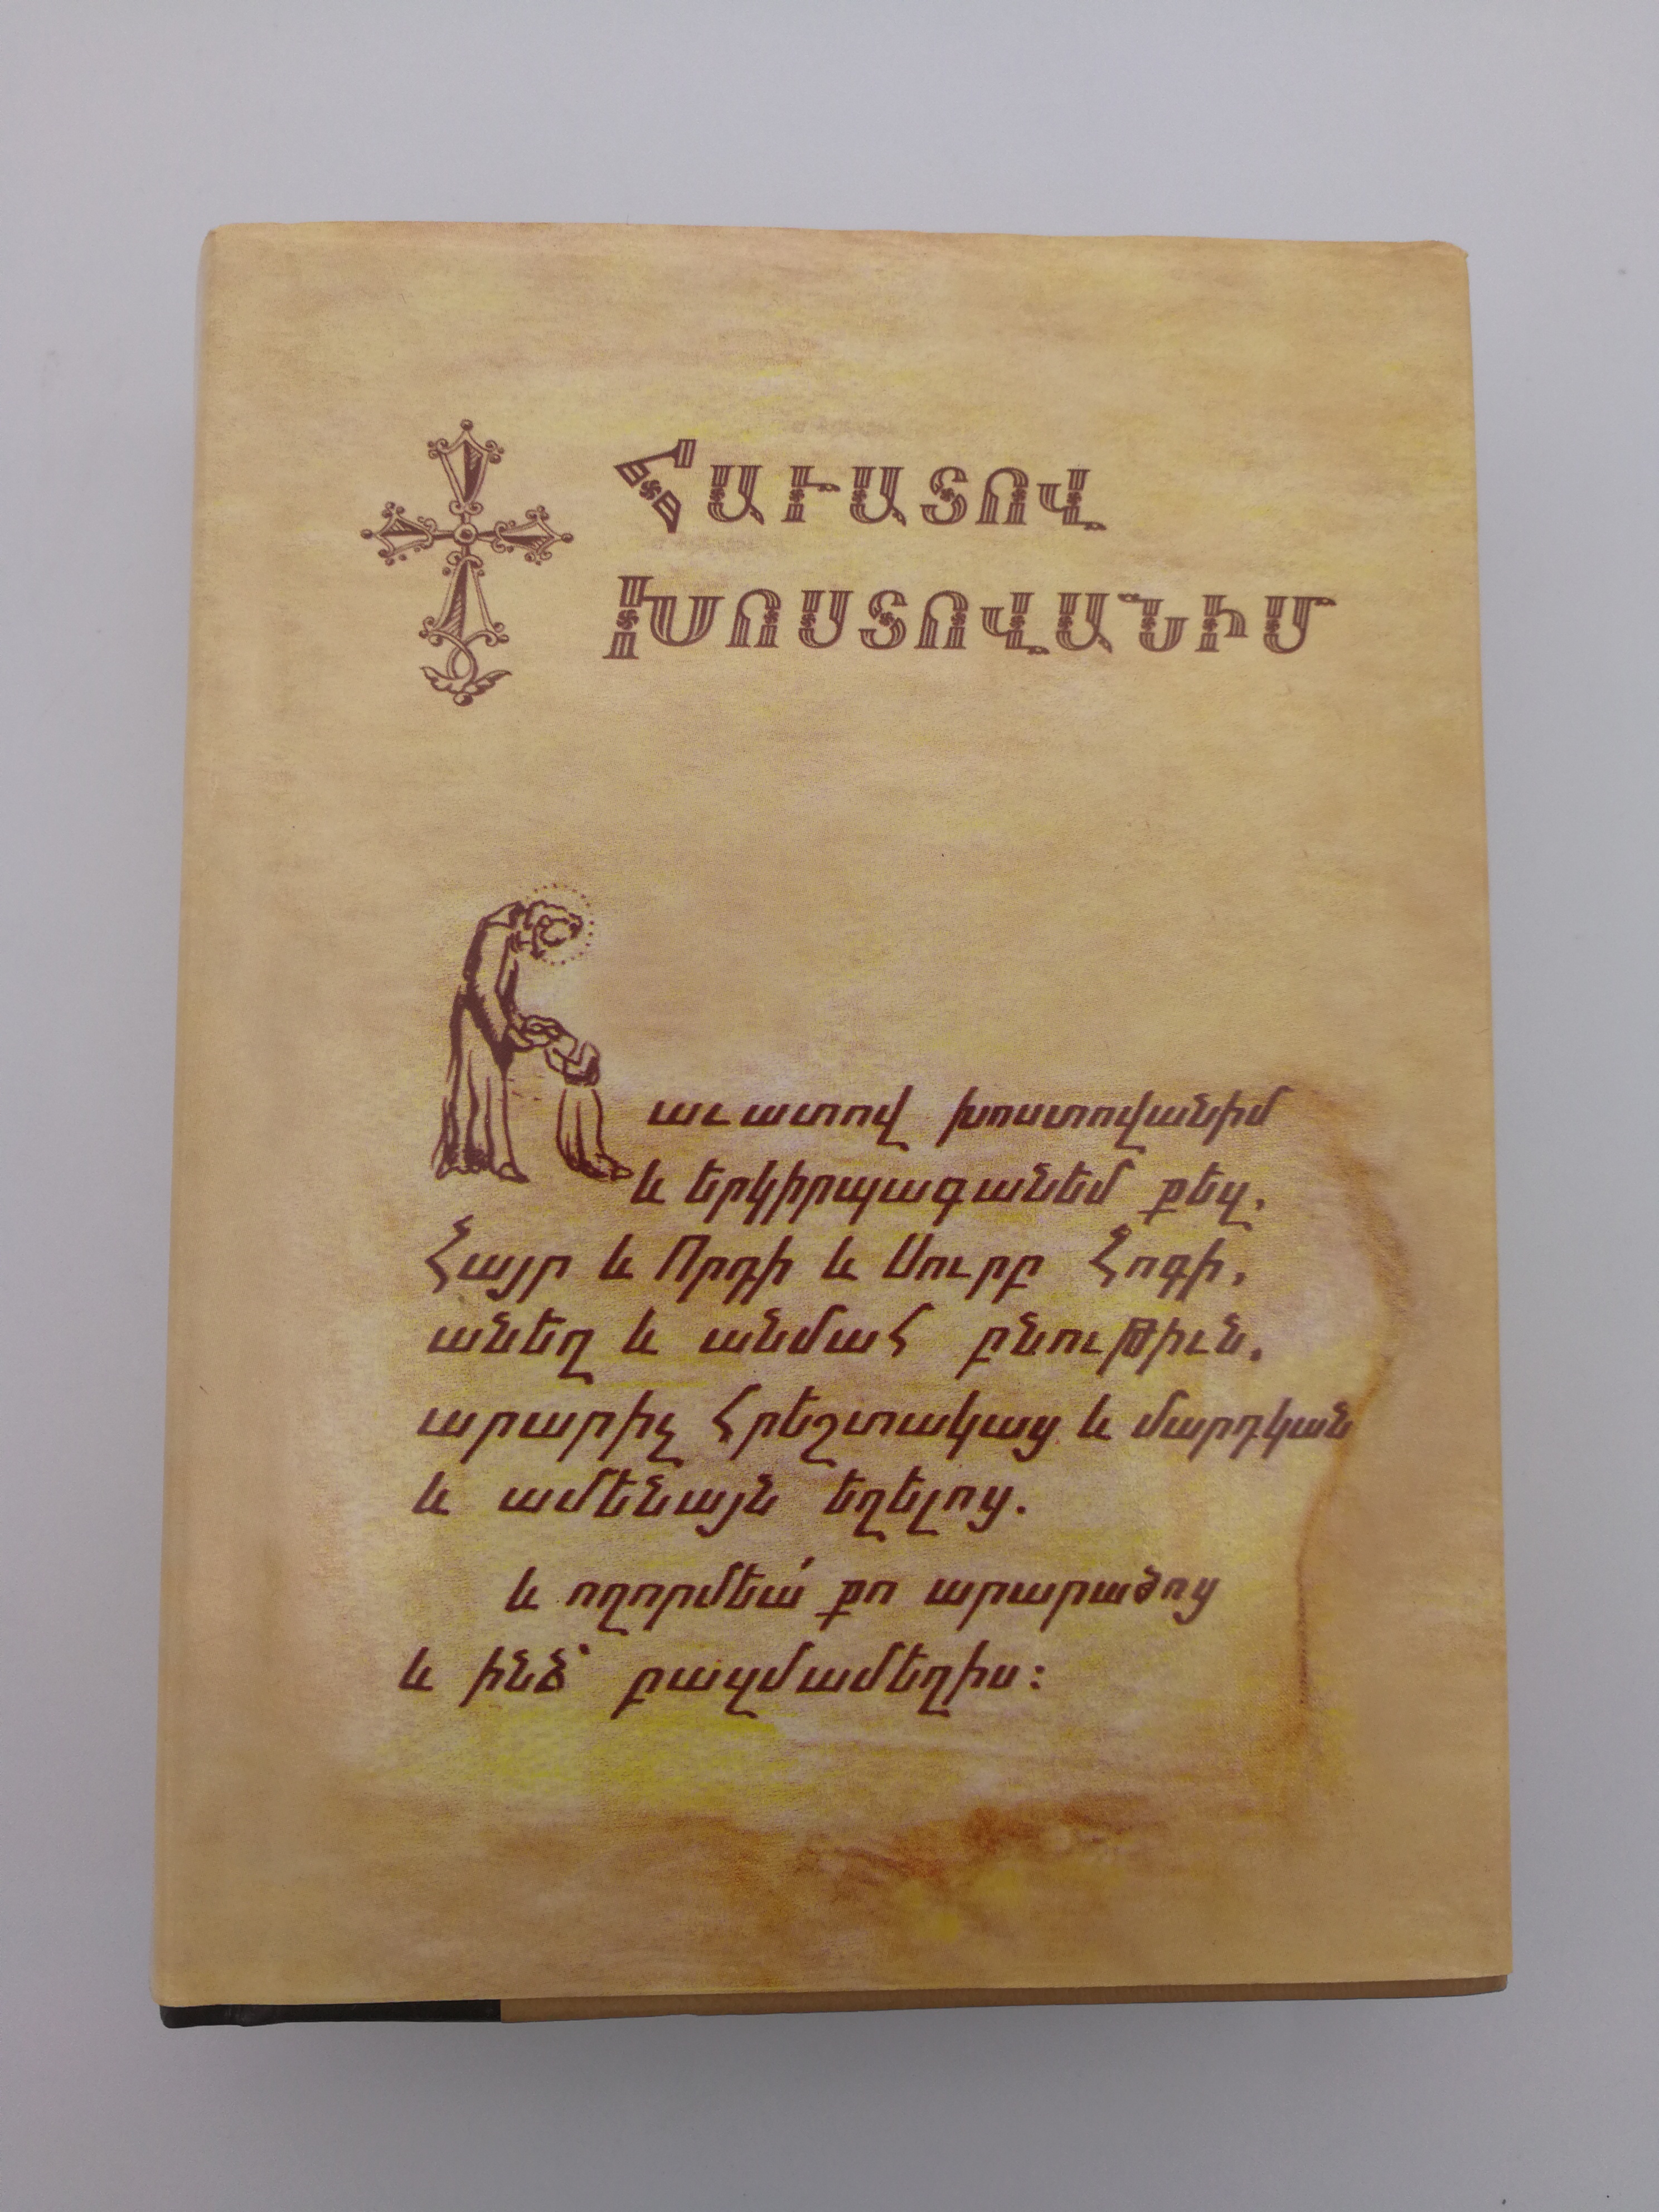 ՀԱՒԱՏՈՎ
ԽՈՍՏՈՎԱՆԻՄ
աւատով խոստովանիմ
և երկիրպագանեմ քեզ.
Հայր և Որդի և Սուրբ Հոգի,
անեղ և անմահ բնութիւն,
արարիչ հրեշտակաց և մարդկան
և ամենայն եղելոց.
և ողորմեա՛ քո արարածոց
և ինձ՝ բազմամեղիս։